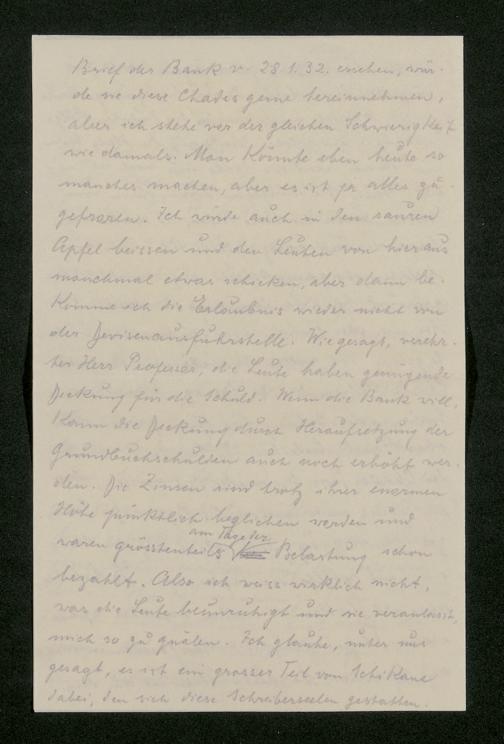 Brief der Bank v. 28.1.32. ersehen, wür-
de sie diese Chades gerne hereinnehmen,
aber ich stehe vor der gleichen Schwierigkeit
wie damals. Man könnte eben heute so
manches machen, aber es ist ja alles zu-
gefroren. Ich würde auch in den sauren
Apfel beissen und den Leuten von hier aus
manchmal etwas schicken, aber dann be-
komme ich die Erlaubnis wieder nicht von
der Devisenausfuhrstelle. Wie gesagt, verehr-
ter Herr Professor, die Leute haben genügende
Deckung für die Schuld. Wenn die Bank will,
kann die Deckung durch Heraufsetzung der
Grundbuchschulden auch noch erhöht wer-
den. Die Zinsen sind trotz ihrer enormen
Höhe pünktlich beglichen worden und
am Tage der
waren grösstenteils Belastung schon
bezahlt. Also ich weiss wirklich nicht,
was die Leute beunruhigt und sie veranlasst,
mich so zu quälen. Ich glaube, unter uns
gesagt, es ist ein grosser Teil von Schikane
dabei, den sich diese Schreiberseelen gestatten.